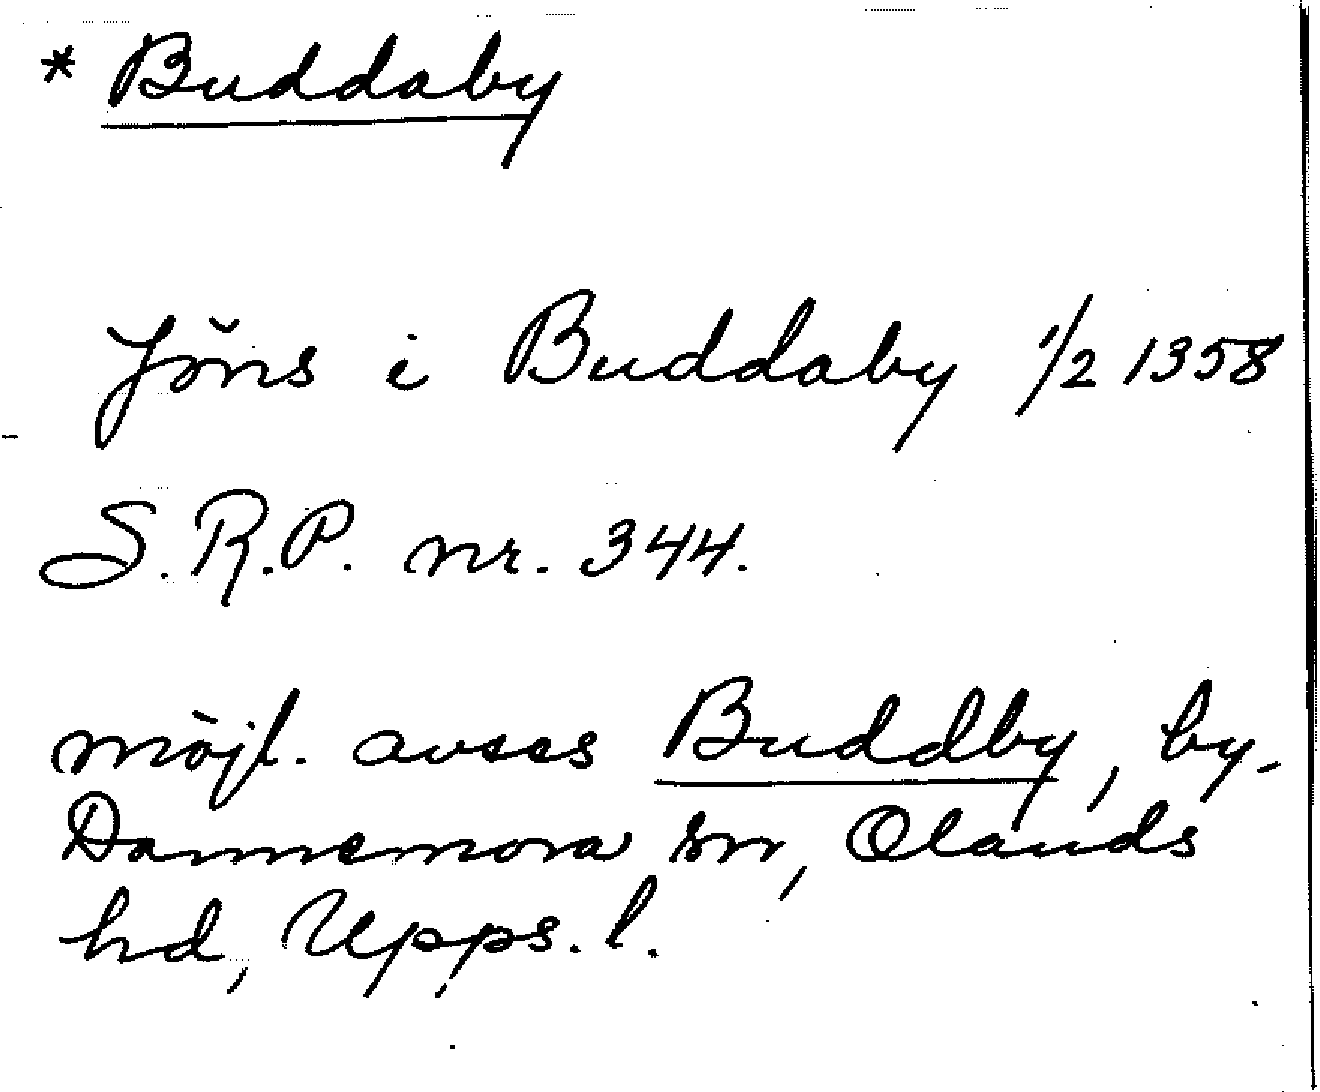 * Buddaby
Jöns i Buddaby 1/2 1358
S.R.P. nr. 344.
möjl. avses Buddby, by,
Dannemora sn, Olands
hd, Upps. l.